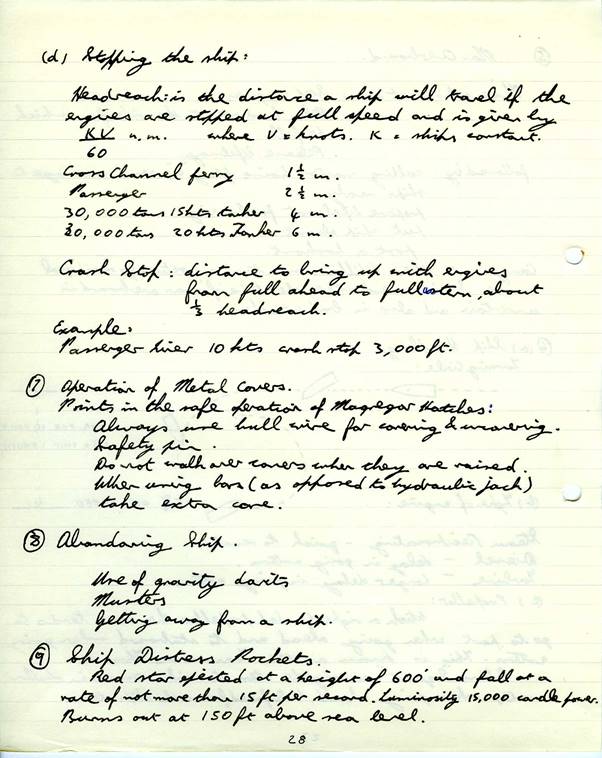 (d) Stopping the ship:
Headreach: is the distance a ship will travel if the
engines are stopped at full speed and is given by
KV n.m. where V = knots. K = ships constant.
60
Cross Channel ferry 1½ m.
Passenger 2½ m.
30,000 tons 15kts tanker 4 m.
30,000 tons 20kts Tanker 6 m.
Crash Stop: distance to bring up with engines
from full ahead to full astern, about
⅓ headreach.
Example:
Passenger liner 10 kts crash stop 3,000 ft.
⑦ Operation of Metal Covers.
Points in the safe operation of Magregor Hatches:
Always use bull wire for covering & uncovering.
Safety pin.
Do not walk over covers when they are raised.
When using bars (as opposed to hydraulic jack)
take extra care.
⑧ Abandoning Ship.
Use of gravity davits
Musters
Getting away from a ship.
⑨ Ship Distress Rockets.
Red star ejected at a height of 600' and fall at a
rate of not more than 15ft per second. Luminosity 15,000 candle power.
Burns out at 150ft above sea level.
28